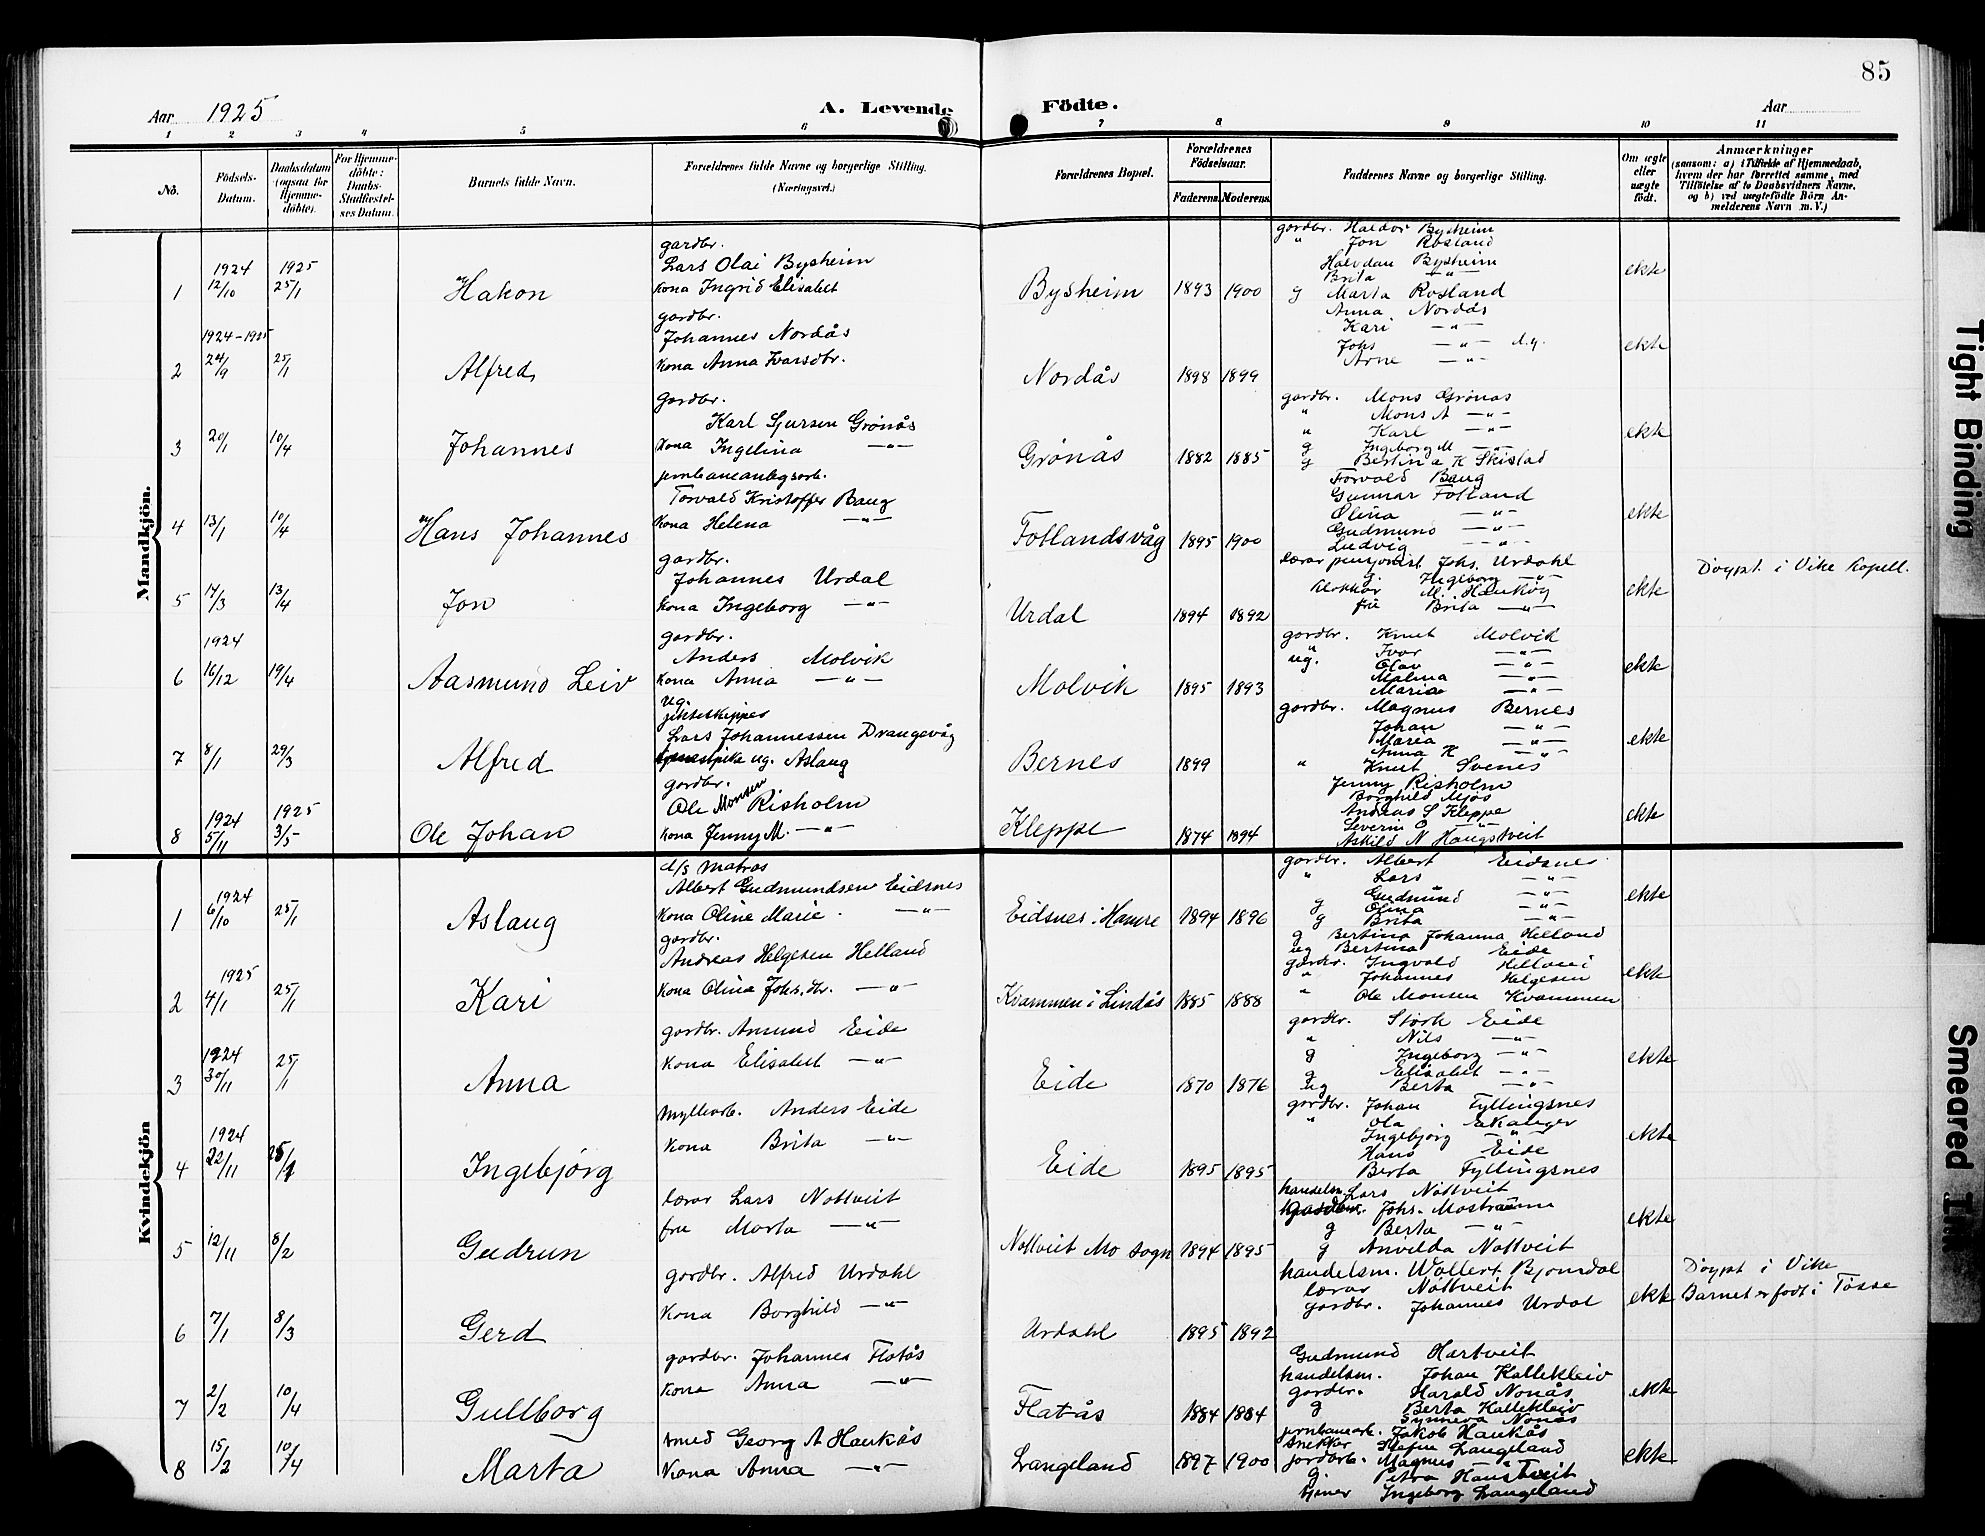 85
Aar 1925
A. Levende Födte.
Aar
1 2 3 4 5 6 7 8 9 10 11
No.
Födsels-Datum.
Daabsdatum (ogsaa for Hjemme-döbte).
For Hjemme-döbte: Daabs-Stadfæstel-ses Datum.
Barnets fulde Navn.
Forældrenes fulde Navne og borgerlige Stilling. (Næringsvei.)
Forældrenes Bopæl.
Forældrenes Födselsaar.
Faderens Moderens
Faddernes Navne og borgerlige Stilling.
Om ægte eller uægte födt.
Anmærkninger
(saasom: a) i Tilfælde af Hjemmedaab, hvem der har forrettet samme, med Tilföielse af to Daabsvidners Navne, og b) ved uægtefödte Börn An-melderens Navn m. V.)
Mandkjön.
1 1924 12/10 1925 25/1 Hakon
gardbr.
Lars Olai Bysheim
kona Ingrid Elisabet
Bysheim 1893 1900
gardbr. Haldor Bysheim
" Jon Rosland
Halvdan Bysheim
Brita —"—
g Marta Rosland
ekte
2 1924-1925 24/9 25/1 Alfred
gardbr.
Johannes Nordås
kona Anna Ivarsdtr.
Nordås 1898 1899
Anna Nordås
Kari —"—
Johs —"— d.y.
Arne —"—
ekte
3 20/1 10/4 Johannes
Gardbr.
Karl Sjursen Grönås
kona Ingelina —"—
Grönås 1882 1885
gardbr. Mons Grönås
" Mons A —"—
" Karl —"—
g Ingeborg M —"—
g Bertina K Skistad
ekte
4 13/1 10/4 Hans Johannes
jernbaneanlegsarb.
Torvald Kristoffer Baug
kona Helena —"—
Fotlandsvåg 1895 1900
Torvald Baug
Gunnar Fotland
Olina —"—
Gudmund —"—
Ludvig —"—
ekte
5 14/3 13/4 Jon
gardbr.
Johannes Urdal
kona Ingeborg —"—
Urdal 1894 1892
lærar pensjonist Johs. Urdahl
g. Ingeborg —"—
klokkar M. Haukøy
fru Brita —"—
ekte
Døypt i Vike Kapell.
6 1924 16/12 19/4 Aasmund Leiv
gardbr.
Anders Molvik
kona Anna —"—
Molvik 1895 1893
gardbr. Knut Molvik
" Ivar —"—
ug. Olav —"—
Malina —"—
Maria —"—
ekte
7 8/1 29/3 Alfred
ug.
jekteskipper
Lars Johannessen Drangevåg
ug. Aslaug
Bernes 1899
gardbr. Magnus Bernes
Johan —"—
Maria —"—
Anna K —"—
" Knut Svenes
ekte
8 1924 5/11 1925 3/5 Ole Johan
gardbr.
Ole Monsen Risholm
kona Jenny M. —"—
Kleppe 1874 1894
Jenny Risholm
Borghild Mjøs
Andreas S Kleppe
Severin O —"—
Askild N Haugstveit
ekte
Kvindekjön
1 1924 6/10 25/1 Aslaug
d/s matros
Albert Gudmundsen Eidsnes
kona Oline Marie. —"—
Eidsnes i Hamre 1894 1896
gardbr. Albert Eidsnes
" Lars —"—
Gudmund —"—
g Olina —"—
g Brita —"—
ekte
2 1925 4/1 25/1 Kari
gardbr.
Andreas Helgesen Helland
kona Olina Johs.dtr. —"—
Kvammen i Lindås 1885 1888
g Bertina Johanna Helland
ug Bertina Eide
gardbr. Ingvald Helland
" Johannes Helgesen
" Ole Monsen Kvammen
ekte
3 1924 30/11 25/1 Anna
gardbr. Amund Eide
kona Elisabet —"—
Eide 1870 1876
gardbr. Störk Eide
" Nils —"—
g Ingeborg —"—
g Elisabet —"—
ug Berta —"—
ekte
4 1924 22/11 25/1 Ingebjörg
myllearb. Anders Eide
kona Brita —"—
Eide 1895 1895
gardbr. Johan Fyllingsnes
" Ola Ekaleger
Ingebjörg —"—
Hans Eide
Berta Fyllingsnes
ekte
5 12/11 8/2 Gudrun
lærar Lars Nottveit
fru Marta —"—
Nottveit Mo sogn 1894 1895
handelsm. Lars Nottveit
Johs. Mostraum
g Berta —"—
g Anvilda Nottveit
ekte
6 7/1 8/3 Gerd
gardbr. Alfred Urdahl
kona Borghild —"—
Urdahl 1895 1892
handelsm. Wollert Bjørnsdal
lærar Nottveit
gardbr. Johannes Urdal
ekte
Døypt i Vike
Barnet er födt i Tösse
7 2/2 10/4 Gullborg
gardbr. Johannes Flatås
kona Anna —"—
Flatås 1884 1884
Gudmund Hartveit
handelsm. Johan Kallekleiv
gardbr. Harald Nonås
g Berta Kallekleiv
Synneva Nonås
ekte
8 15/2 10/4 Marta
smed Georg A Haukås
Kona Anna —"—
Langeland 1897 1900
jernbanearb. Jakob Haukås
snekkar Langeland
jordarb. Magnus —"—
g. Petra Hanstveit
tjener Ingeborg Langeland
ekte
Tight Binding
Smeared Ink